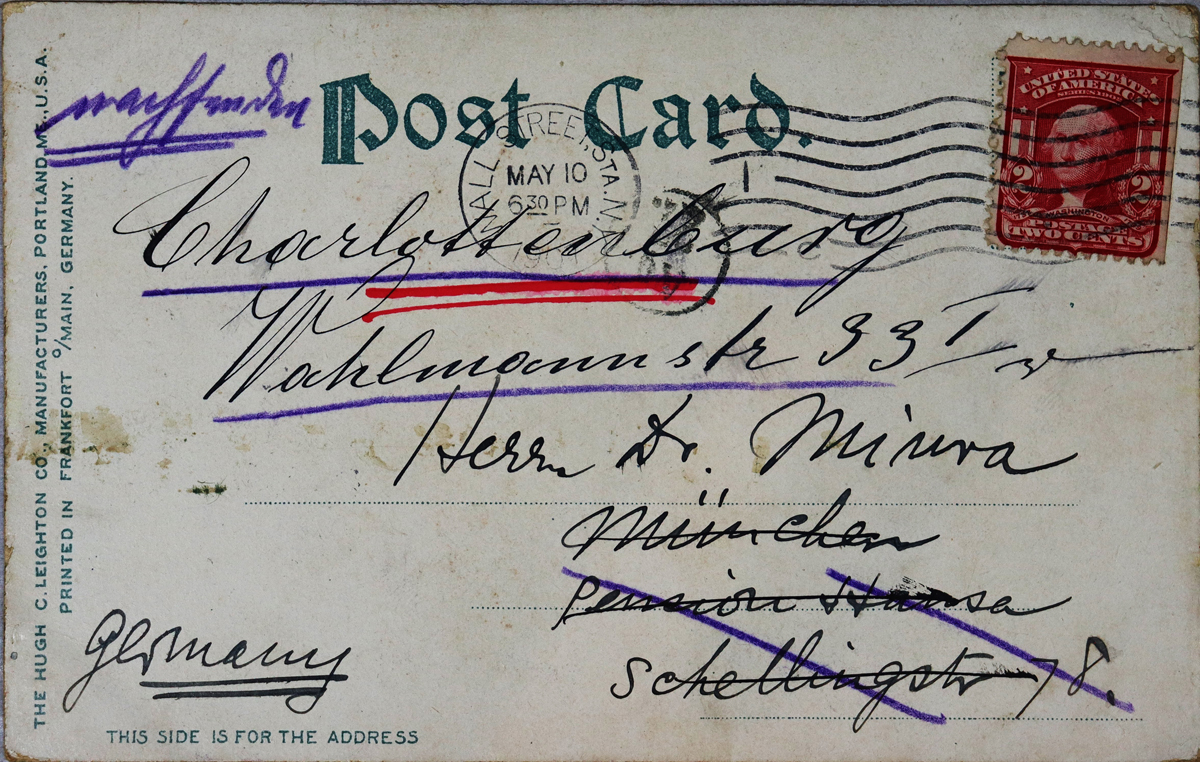 THE HUGH C. LEIGHTON CO., MANUFACTURERS, PORTLAND, ME., U.S.A.
PRINTED IN FRANKFORT o/MAIN, GERMANY.
nachsenden
Post Card.
WALL STREET, STA. N.Y.
MAY 10
6 30 PM
UNITED STATES
OF AMERICA
WASHINGTON
2 2
TWO CENTS
Charlottenburg
Wahlmannstr 33 I
Herrn Dr. Miura
München
Pension Hansa
Schellingstr 78.
Germany
THIS SIDE IS FOR THE ADDRESS